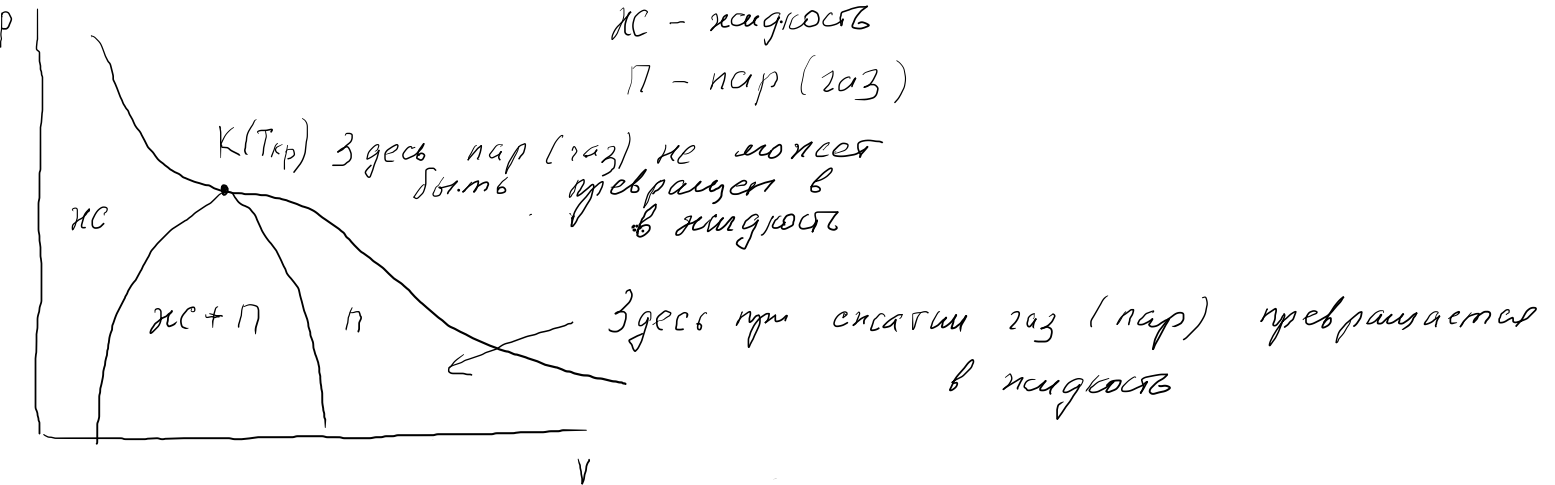 P
ж – жидкость
П – пар (газ)
К(Ткр) Здесь пар (газ) не может
быть превращен в
в жидкость
ж
ж + П
п
Здесь при сжатии газ (пар) превращается
в жидкость
V